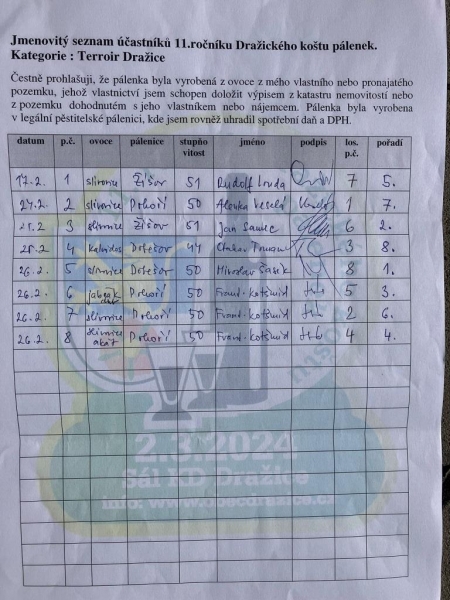 Jmenovitý seznam účastníků 11.ročníku Dražického koštu pálenek.
Kategorie : Terroir Dražice
Čestně prohlašuji, že pálenka byla vyrobená z ovoce z mého vlastního nebo pronajatého
pozemku, jehož vlastnictví jsem schopen doložit výpisem z katastru nemovitostí nebo
z pozemku dohodnutém s jeho vlastníkem nebo nájemcem. Pálenka byla vyrobena
v legální pěstitelské pálenici, kde jsem rovněž uhradil spotřební daň a DPH.
datum p.č. ovoce pálenice stupňovitost jméno podpis los. p.č. pořadí
17.2. 1 slivovice Žíšov 51 Rudolf 7 5.
24.2. 2 slivovice 50 Alenka Veselá 1 7.
25.2. 3 slivovice Žíšov 51 Jan 6 2.
25.2. 4 44 3 8.
26.2. 5 slivovice 50 Miroslav Šašek 8 1.
26.2. 6 50 5 3.
26.2. 7 slivovice 50 2 6.
26.2. 8 slivovice 50 4 4.
2.3.2024
Sál KD Dražice
info: www.obecdrazice.cz